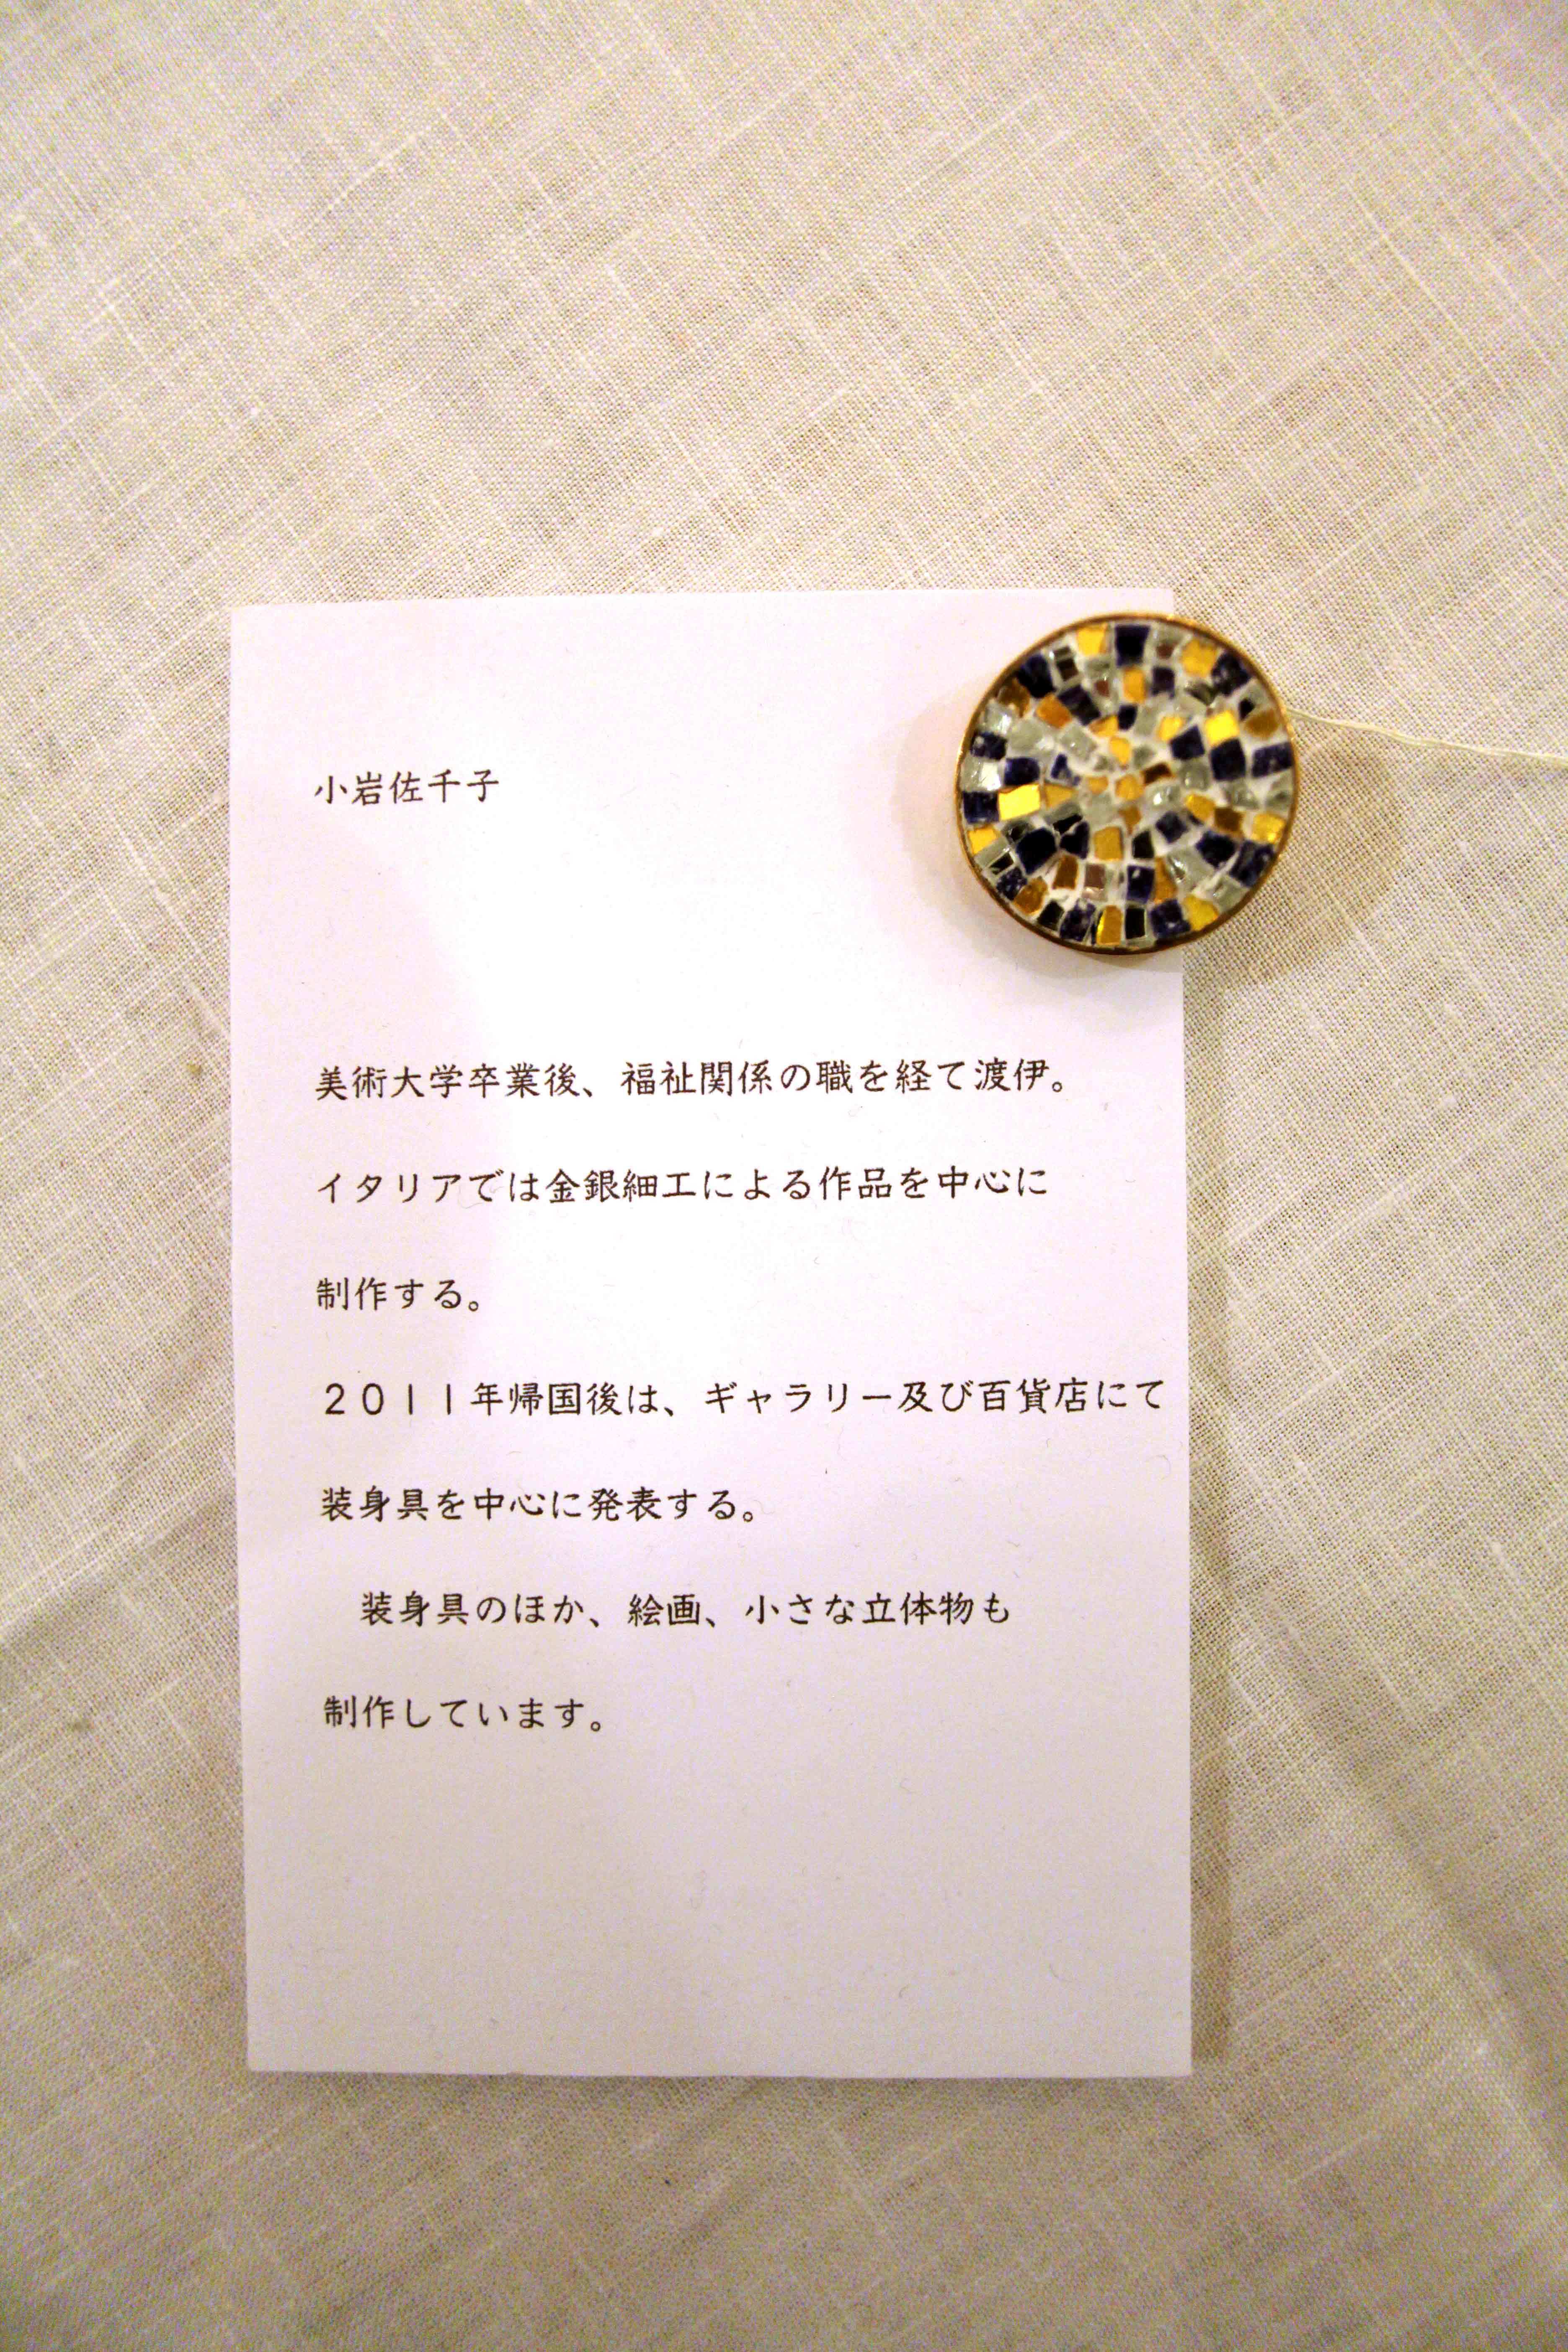 小岩佐千子
美術大学卒業後、福祉関係の職を経て渡伊。
イタリアでは金銀細工による作品を中心に
制作する。
２０１１年帰国後は、ギャラリー及び百貨店にて
装身具を中心に発表する。
　装身具のほか、絵画、小さな立体物も
制作しています。